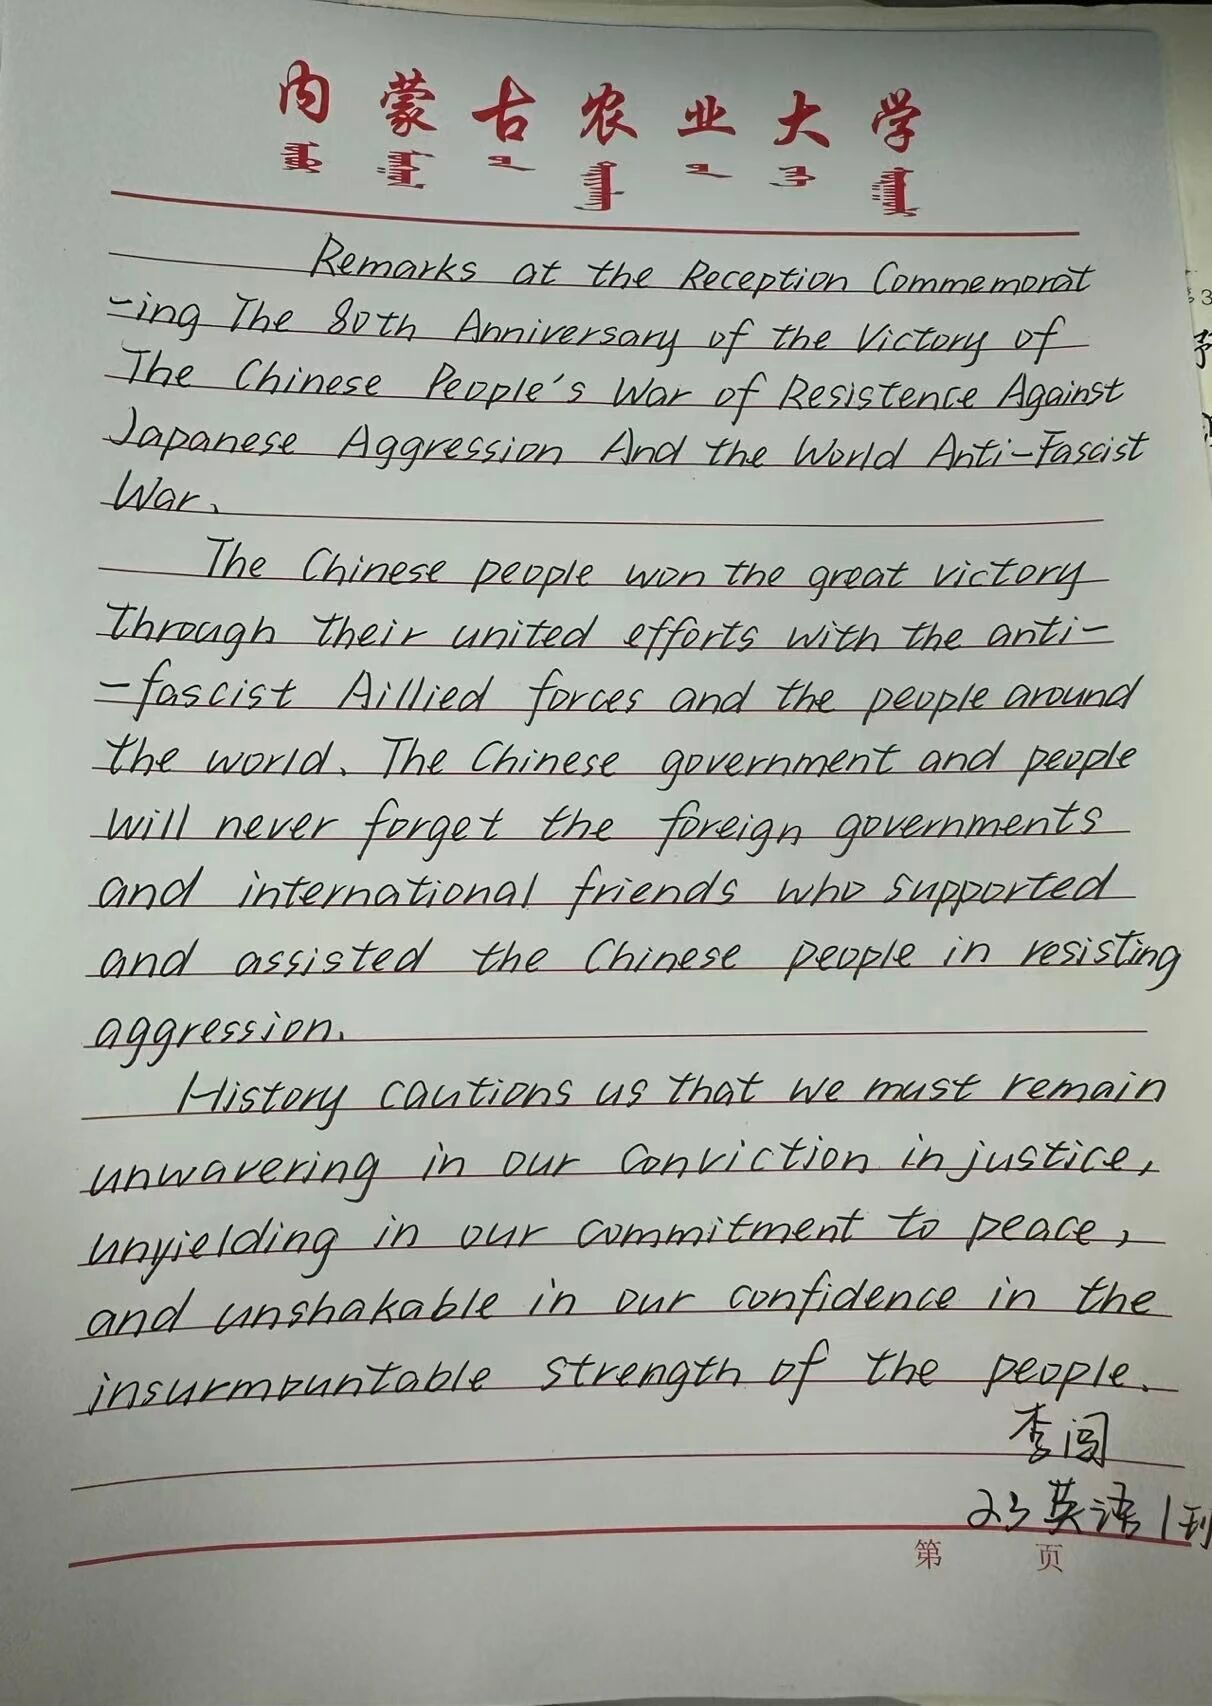 内蒙古农业大学
Remarks at the Reception Commemorat
-ing The 80th Anniversary of the Victory of
The Chinese People's War of Resistence Against
Japanese Aggression And the World Anti-Fascist
War.
The Chinese people won the great victory
through their united efforts with the anti-
-fascist Aillied forces and the people around
the world. The Chinese government and people
will never forget the foreign governments
and international friends who supported
and assisted the Chinese people in resisting
aggression.
History cautions us that we must remain
unwavering in our conviction in justice,
unyielding in our commitment to peace,
and unshakable in our confidence in the
insurmountable strength of the people.
李闯
23英语1班
第 页